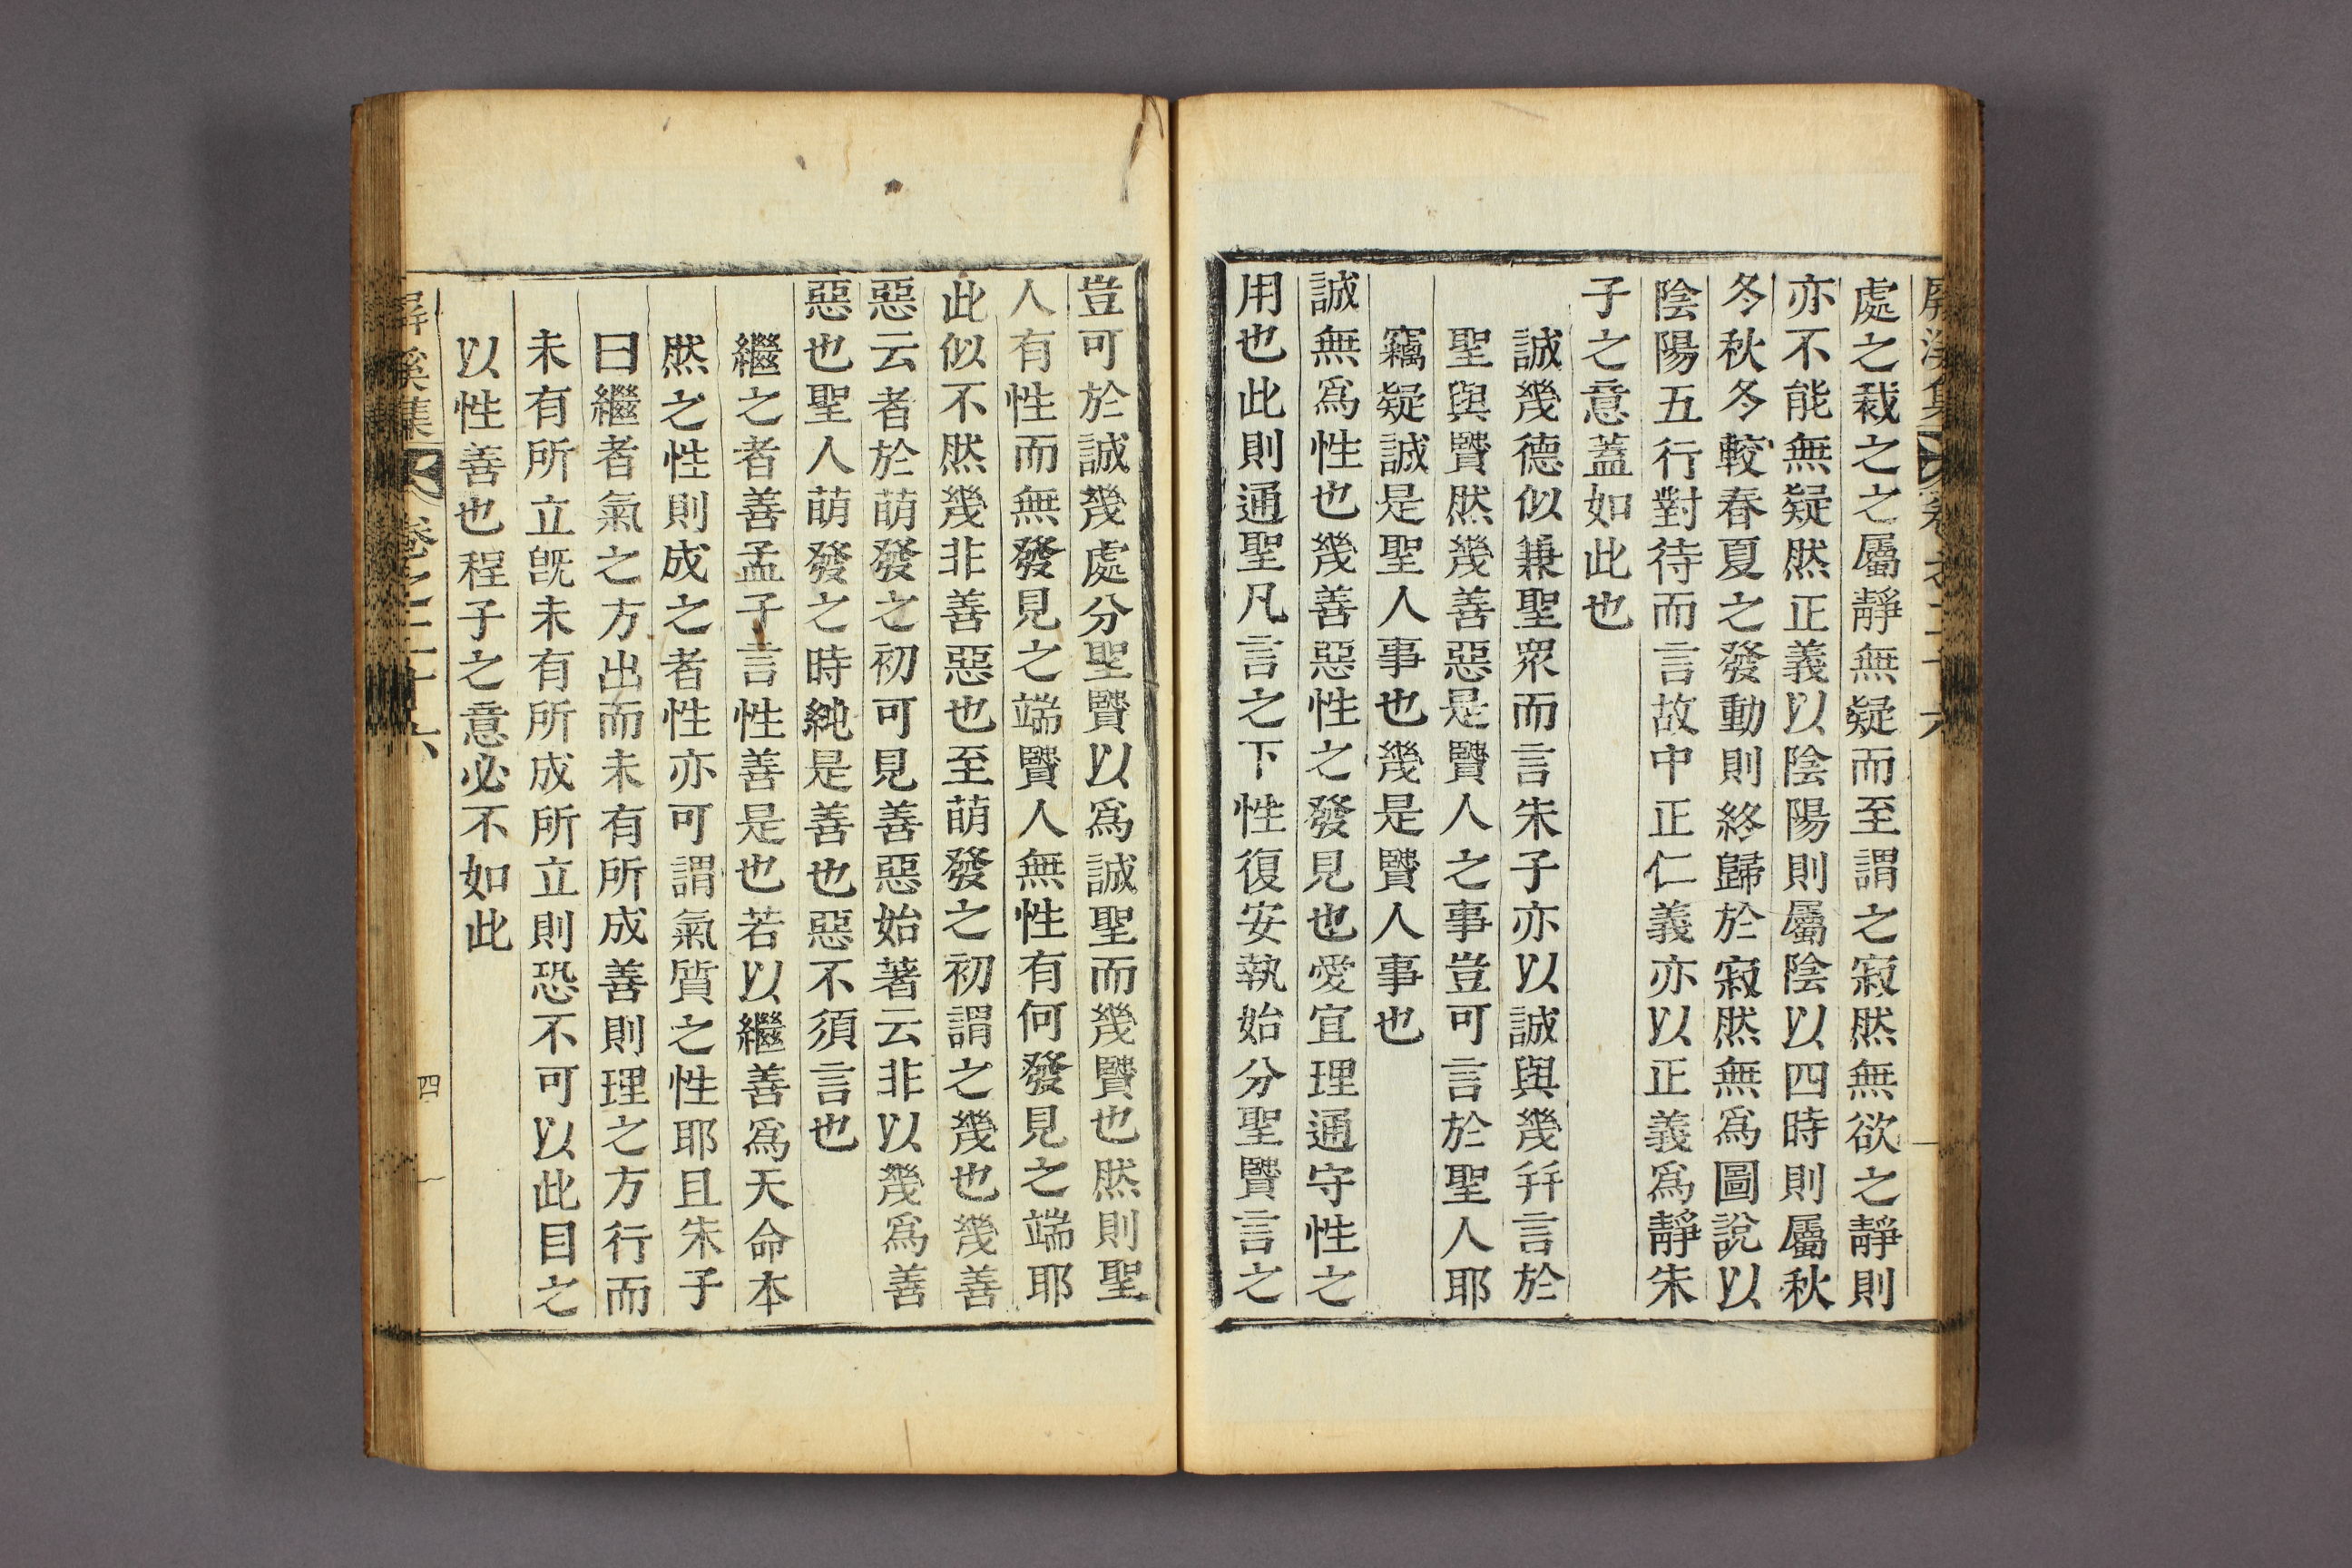 屛溪集 卷之二十六
處之裁之之屬靜無疑而至謂之寂然無欲之靜則
亦不能無疑然正義以陰陽則屬陰以四時則屬秋
冬秋冬較春夏之發動則終歸於寂然無爲圖說以
陰陽五行對待而言故中正仁義亦以正義爲靜朱
子之意蓋如此也
誠幾德似兼聖衆而言朱子亦以誠與幾幷言於
聖與賢然幾善惡是賢人之事豈可言於聖人耶
竊疑誠是聖人事也幾是賢人事也
誠無爲性也幾善惡性之發見也愛宜理通守性之
用也此則通聖凡言之下性復安執始分聖賢言之
豈可於誠幾處分聖賢以爲誠聖而幾賢也然則聖
人有性而無發見之端賢人無性有何發見之端耶
此似不然幾非善惡也至萌發之初謂之幾也幾善
惡云者於萌發之初可見善惡始著云非以幾爲善
惡也聖人萌發之時純是善也惡不須言也
繼之者善孟子言性善是也若以繼善爲天命本
然之性則成之者性亦可謂氣質之性耶且朱子
曰繼者氣之方出而未有所成善則理之方行而
未有所立旣未有所成所立則恐不可以此目之
以性善也程子之意必不如此
屛溪集 卷之二十六 四